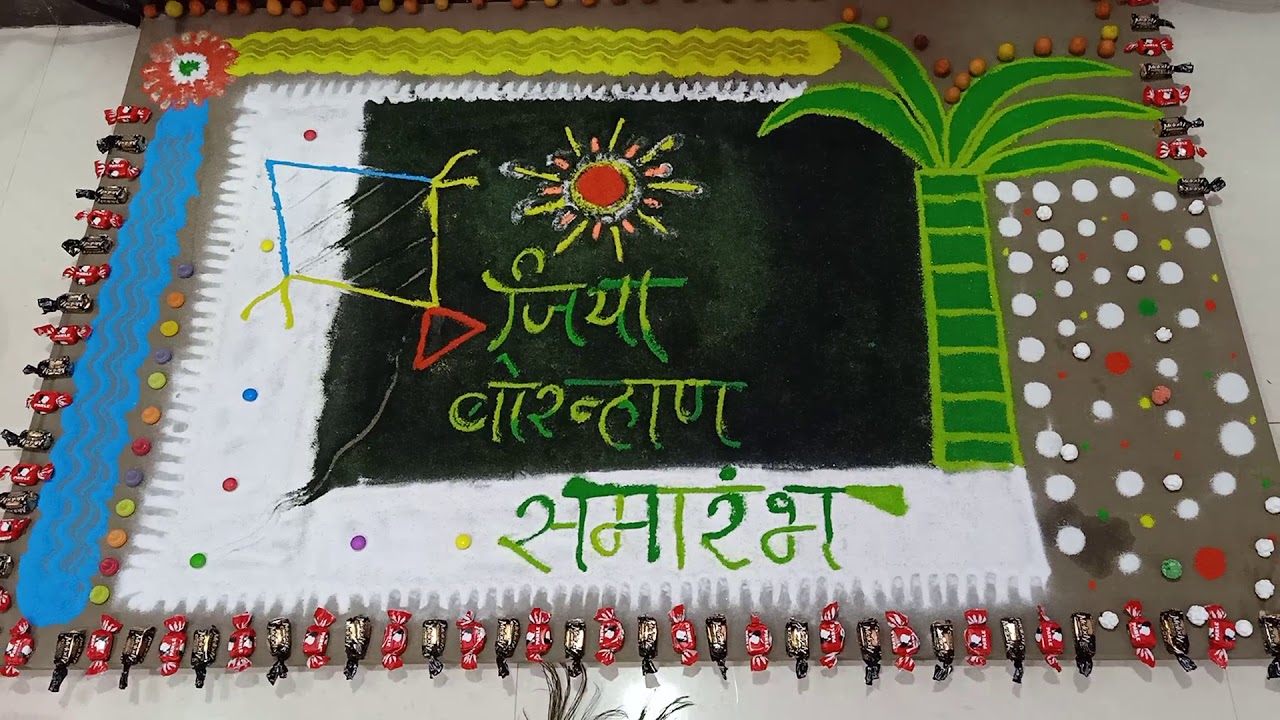 जिया
बोरन्हाण
समारंभ